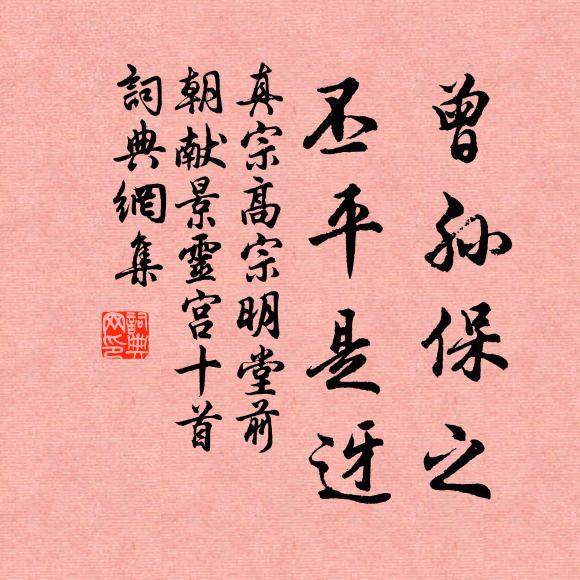 曾孙保之
丕平是迓
真宗高宗明堂前
朝献景靈宫十首
詞典網集
詞典網印